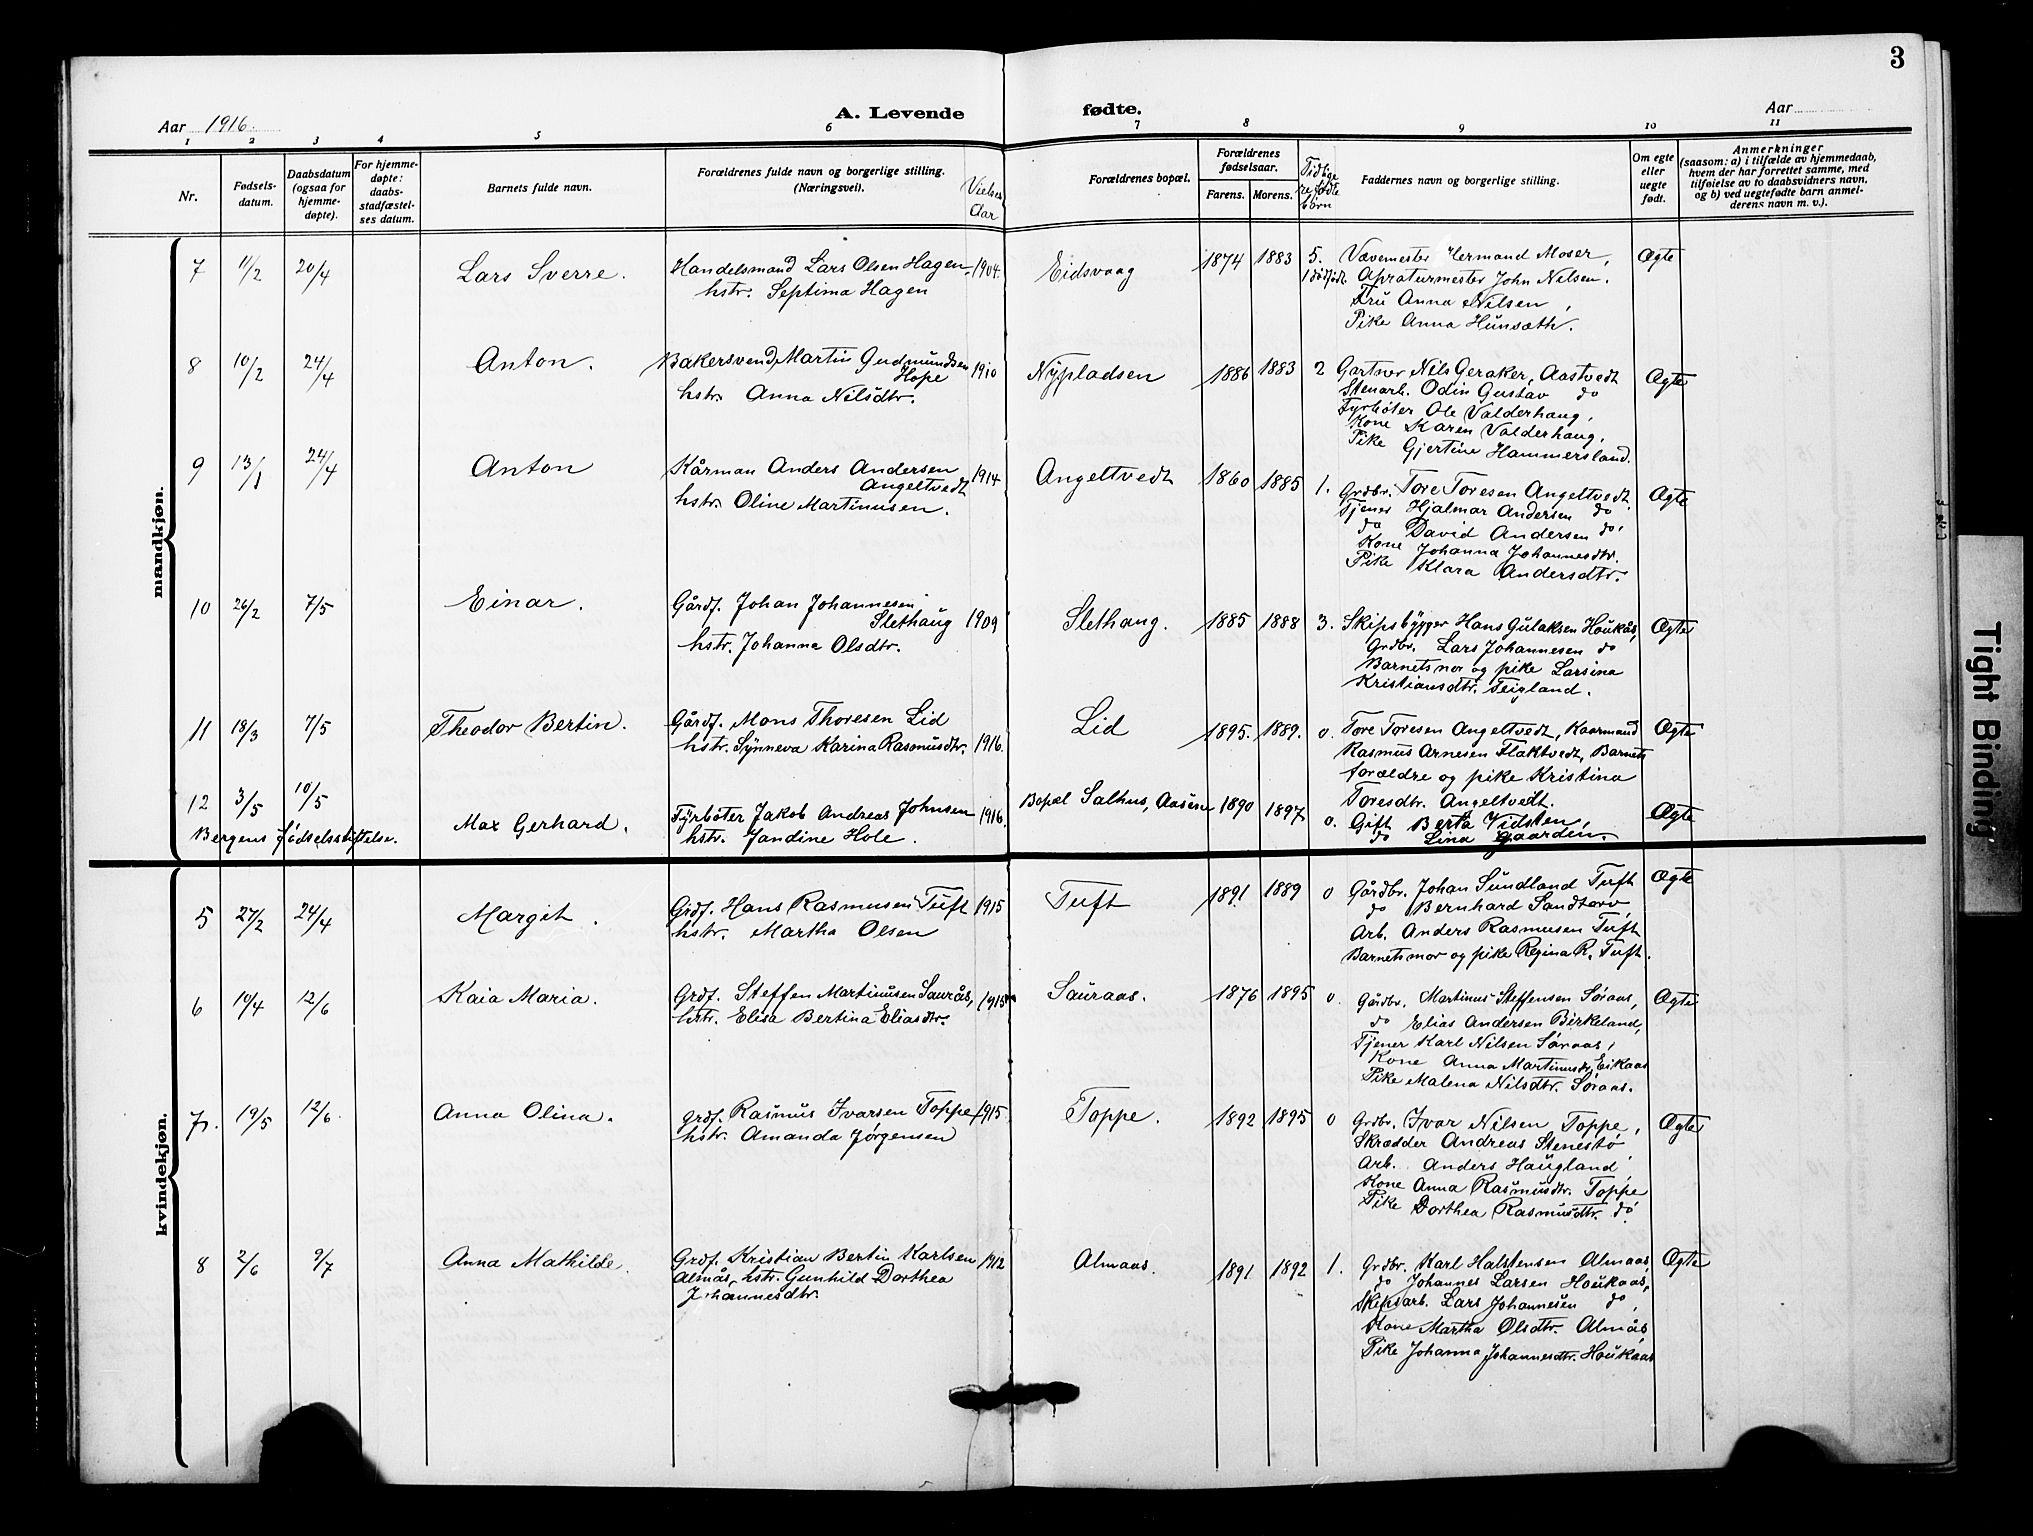 3
Aar 1916.
A. Levende fødte.
Aar
1 2 3 4 5 6 7 8 9 10 11
Nr.
Fødsels-
datum.
Daabsdatum
(ogsaa for
hjemme-
døpte).
For hjemme-
døpte:
daabs-
stadfæstel-
ses datum.
Barnets fulde navn.
Forældrenes fulde navn og borgerlige stilling.
(Næringsvei).
Vielses
Aar
Forældrenes bopæl.
Forældrenes
fødselsaar.
Farens. Morens.
Tidlige
re fødte
børn
Faddernes navn og borgerlige stilling.
Om egte
eller
uegte
født.
Anmerkninger
(saasom: a) i tilfælde av hjemmedaab,
hvem der har forrettet samme, med
tilføielse av to daabsvidners navn,
og b) ved uegtefødte barn anmel-
derens navn m. v.).
mandkjøn.
7 11/2 20/4 Lars Sverre.
Handelsmand Lars Olsen Hagen 1904.
hstr. Septima Hagen
Eidsvaag 1874 1883 5.
1 dødfødt.
Vævemester Hermand Moser,
Apraturmester John Nilsen.
Fru Anna Nilsen,
Pike Anna Hunsæth.
Ægte
8 10/2 24/4 Anton.
Bakersvend Martin Gudmundsen
Hope 1910
hstr. Anna Nilsdtr.
Nypladsen 1886 1883 2
Gartner Nils Geraker, Aastvedt
Stenarb. Odin Gustav do
Fyrbøter Ole Valderhaug,
Kone Karen Valderhaug,
Pike Gjertine Hammersland.
Ægte
9 13/1 24/4 Anton
Kårman Anders Andersen
Angeltvedt 1914
hstr. Oline Martinusen.
Angeltvedt 1860 1885 1.
Grdbr. Tore Toresen Angeltvedt
Tjener Hjalmar Andersen do
do David Andersen do,
Kone Johanna Johannesdtr.
Pike Klara Andersdtr.
Ægte
10 26/2 7/5 Einar.
Gårdf. Johan Johannesen
Slethaug 1909
hstr. Johanna Olsdtr.
Slethaug. 1885 1888 3.
Skipsbygger Hans Gulaksen Houkås,
Grdbr. Lars Johannesen do
Barnets mor og pike Larsina
Kristiansdtr. Teigland.
Ægte
11 18/3 7/5 Theodor Bertin.
Gårdf. Mons Thoresen Lid
hstr. Synneva Karina Rasmusdtr. 1916.
Lid 1895. 1889. 0.
Tore Toresen Angeltvedt, Kaarmand
Rasmus Arnesen Flaktvedt, Barnets
forældre og pike Kristina
Toresdtr. Angeltvedt.
Ægte
12 3/5 10/5 Max Gerhard.
Bergens fødselsstiftelse.
Fyrbøter Jakob Andreas Johnsen 1916.
hstr. Jandine Hole.
Bopæl Salhus, Aasene 1890 1897 0.
Gift Berta Vidsten,
do Lina Gaarden.
Ægte
kvindekjøn.
5 27/2 24/4 Margit.
Grdf. Hans Rasmusen Tuft 1915
hstr. Martha Olsen
Tuft 1891 1889 0
Gårdbr. Johan Sundland Tuft
do Bernhard Sandtorv
Arb. Anders Rasmusen Tuft
Barnets mor og pike Regina R. Tuft.
Ægte
6 10/4 12/6 Kaia Maria.
Grdf. Steffen Martinusen Saurås, 1915
hstr. Elisa Bertina Eliasdtr.
Sauraas. 1876 1895 0.
Gårdbr. Martinus Steffensen Søraas,
do Elias Andersen Birkeland,
Tjener Karl Nilsen Søraas,
Kone Anna Martinusdtr. Eikaas
Pike Malena Nilsdtr. Søraas.
Ægte
7. 19/5 12/6. Anna Olina.
Grdf. Rasmus Ivarsen Toppe 1915
hstr. Amanda Jørgensen
Toppe. 1892 1895 0
Grdbr. Ivar Nilsen Toppe,
Skrædder Andreas Stenestø
Arb. Anders Haugland,
Kone Anna Rasmusdtr. Toppe
Pike Dorthea Rasmusdtr. do.
Ægte
8 2/6 9/7 Anna Mathilde.
Grdf. Kristian Bertin Karlsen 1912
Almås, hstr. Gunhild Dorthea
Johannesdtr.
Almaas. 1891 1892 1.
Grdbr. Karl Halstensen Almaas,
do Johannes Larsen Houkaas,
Skipsarb. Lars Johannesen do,
Kone Martha Olsdtr. Almås,
Pike Johanna Johannesdtr. Houkaas
Ægte
Tight Binding